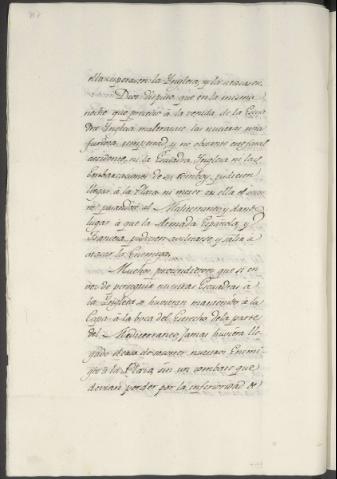 la Inglesa, y la atacasen.
Dios dispuso, que en la misma
noche que precedió á la venida de la Escua
dra Inglesa maltratase las nuestras una
furiosa tempestad, y no obstante este fatal
accidente, ni la Escuadra Inglesa ni las
embarcaciones de su Comboy, pudieron
llegar á la Plaza ni meter en ella el
pasandose al Mediterraneo, y dando
lugar á que la Armada Española y
Francesa, pudiesen y salir á
atacar la Enemiga.
Muchos pretendieron que si en
vez de perseguir nuestras Escuadras á
la Inglesa se huviesen mantenido á la
Capa á la boca del Estrecho de la parte
del Mediterraneo, jamas huviera lle
gado á nuestros Enemi
gos á la Plaza, sin un combate que
devian perder por la inferioridad de